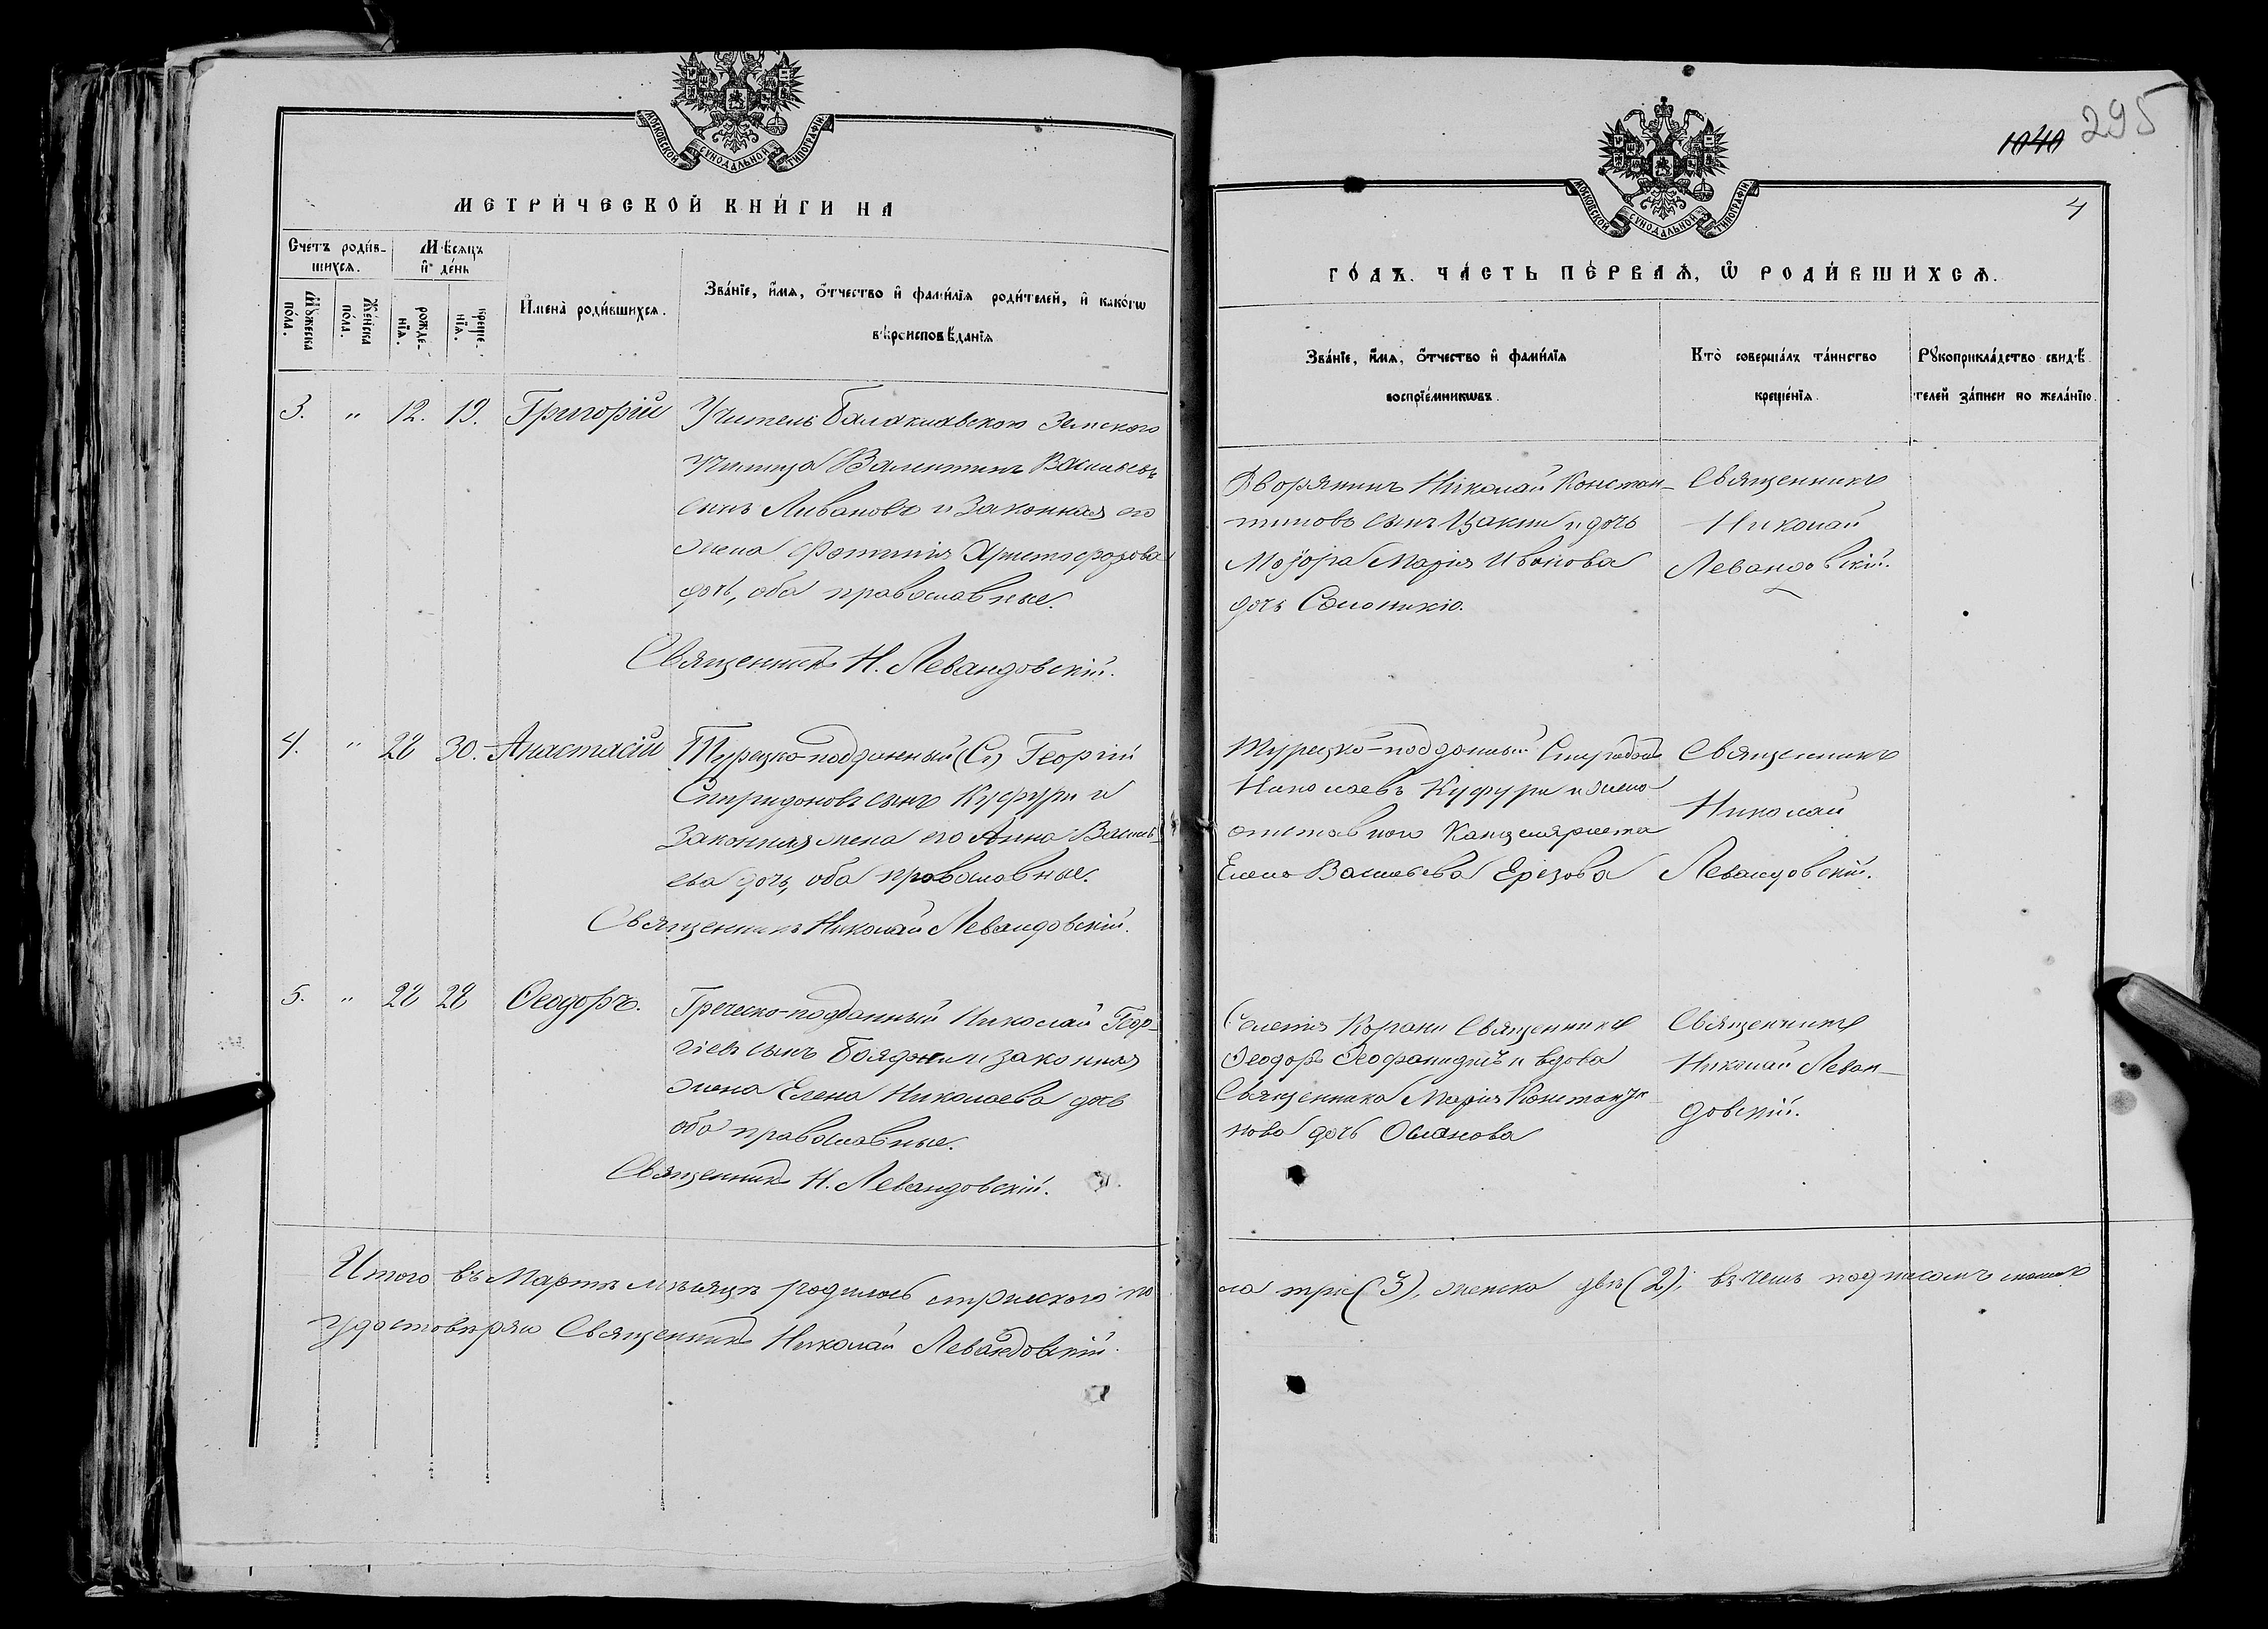 МОСКОВСКОЙ СУНОДАЛЬНОЙ ТИПОГРАФІИ
МЕТРИЧЕСКОЙ КНИГИ НА
Счетъ родив-
шихся.
Мѣсяцъ
и день
Мужеска
пола.
Женска
пола.
рожде-
нія.
креще-
нія.
Имена родившихся.
Званіе, имя, отчество и фамилія родителей, и какогѡ
вѣроисповѣданія
3. " 12. 19. Григорій
Учитель Балаклавскаго Земскаго
училища Валентинъ Васильевъ
сынъ Ливановъ и законная его
жена Фотинія Христофорова
дочь, оба православные.
Священникъ Н. Левандовскій.
4. " 28 30. Анастасій
Турецко-подданный Георгій
Спиридоновъ сынъ Куфури и
законная жена его Анна Василь-
ева дочь, оба православные.
Священникъ Николай Левандовскій.
5. " 28 28 Ѳеодоръ.
Греческо-подданный Николай Геор-
гіевъ сынъ Бояджи и законная
жена Елена Николаева дочь
оба православные.
Священникъ Н. Левандовскій.
Итого въ Мартѣ мѣсяцѣ родилось мужескаго по
удостовѣряю Священникъ Николай Левандовскій.
1040 295
МОСКОВСКОЙ СУНОДАЛЬНОЙ ТИПОГРАФІИ
4
ГОДЪ. ЧАСТЬ ПЕРВАЯ, Ѡ РОДИВШИХСЯ.
Званіе, имя, отчество и фамилія
воспріемникѡвъ.
Кто совершалъ таинство
крещенія.
Рукоприкладство свидѣ
телей записи по желанію.
Дворянинъ Николай Констан-
тиновъ сынъ Цакни и дочь
Маіора Марія Иванова
дочь
Священникъ
Николай
Левандовскій.
Турецко-подданный Спиридонъ
Николаевъ Куфури и жена
отставнаго Канцеляриста
Елена Васильева
Священникъ
Николай
Левандовскій.
Селенія Карани Священникъ
Ѳеодоръ и вдова
Священника Марія Константи
нова дочь
Священникъ
Николай Леван-
довскій.
ла три (3), женска двѣ (2), въ чемъ подписомъ